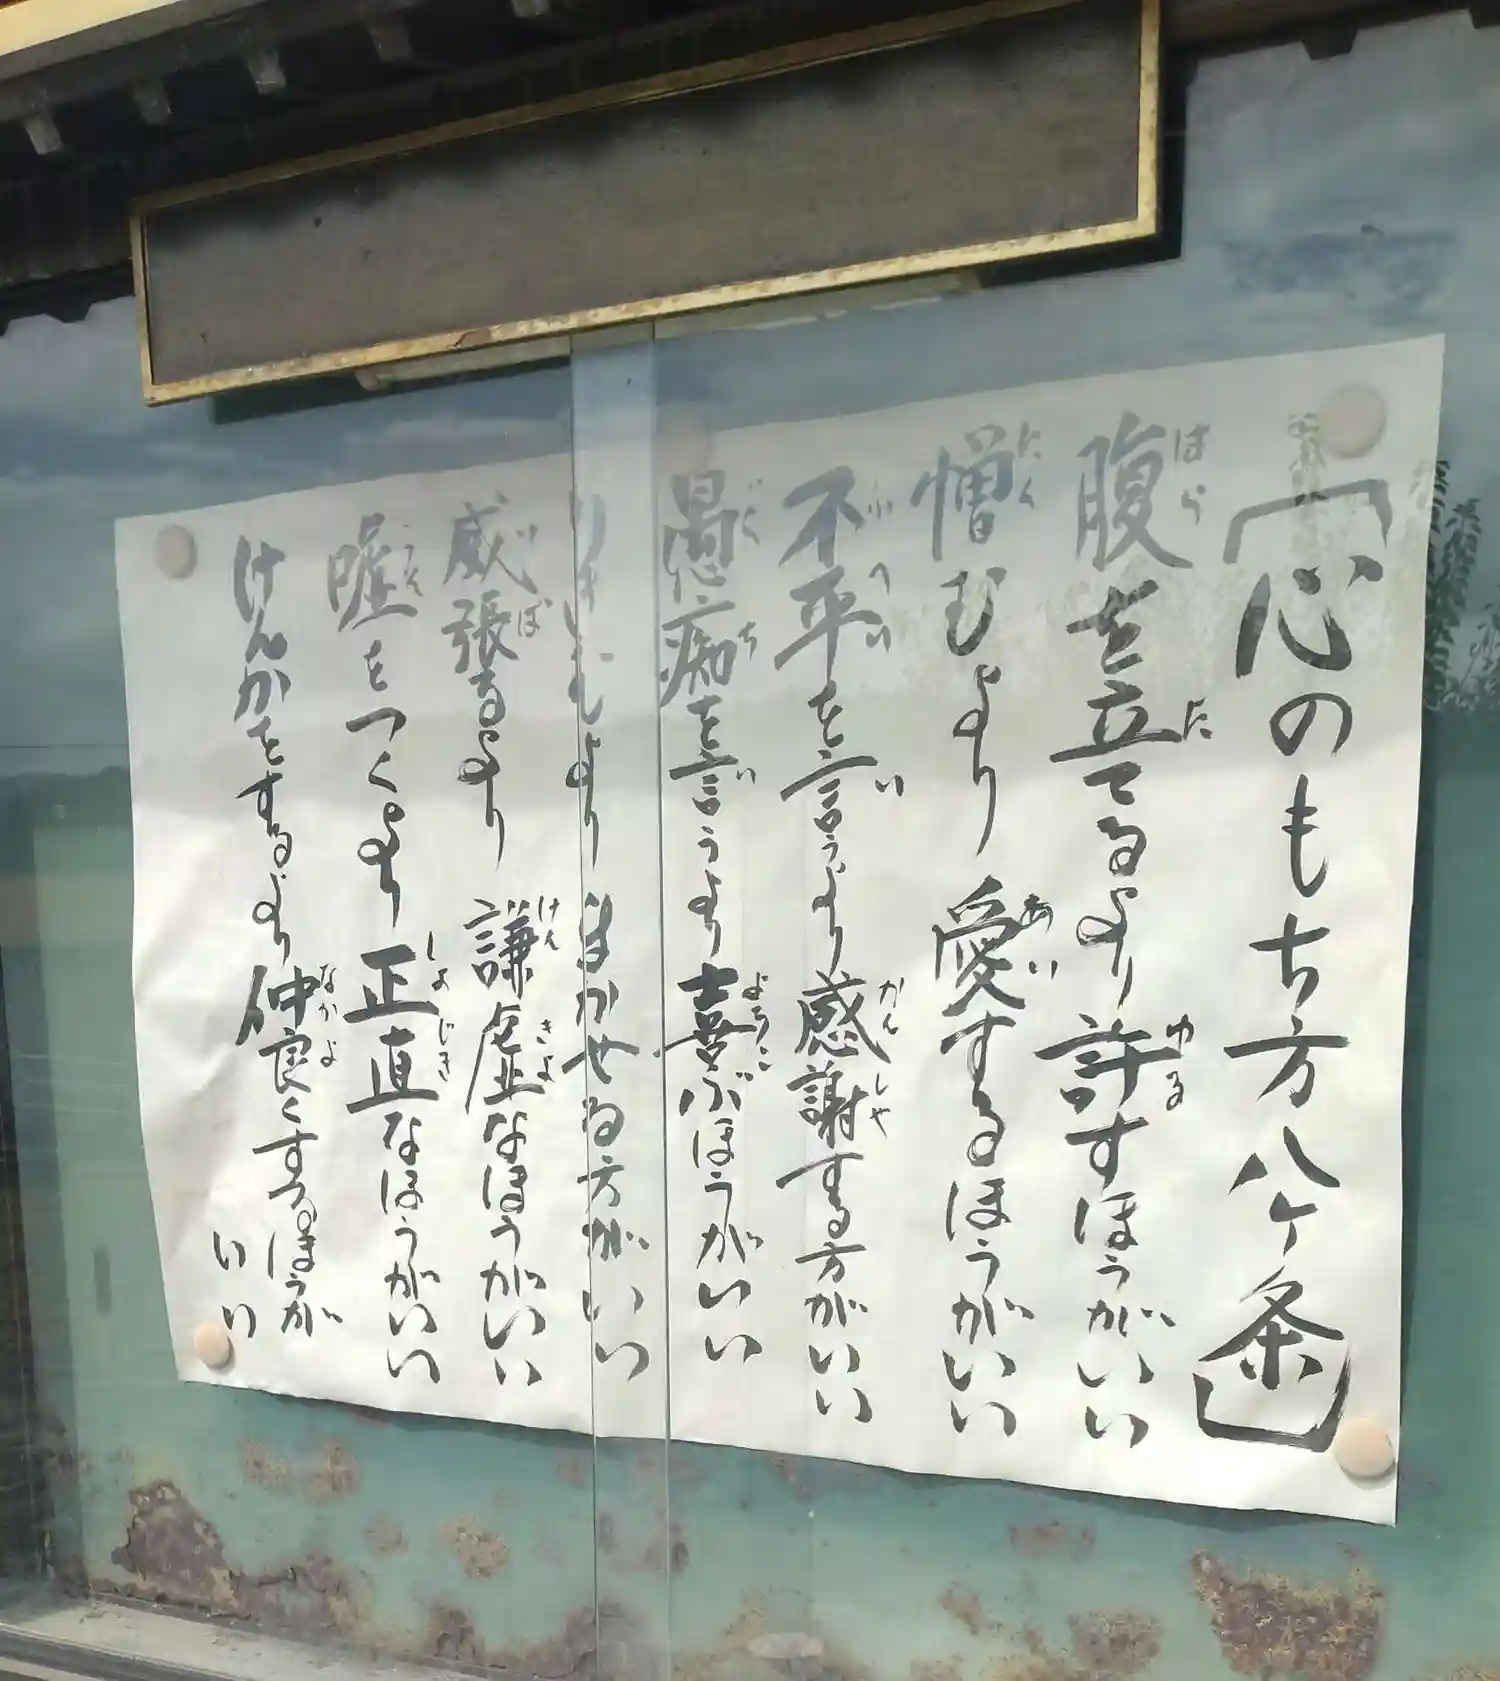 「心のもち方八ケ条」
腹を立てるより許すほうがいい
憎むより愛するほうがいい
不平を言うより感謝する方がいい
愚痴を言うより喜ぶほうがいい
りきむよりまかせる方がいい
威張るより謙虚なほうがいい
嘘をつくより正直なほうがいい
けんかをするより仲良くするほうが
いい